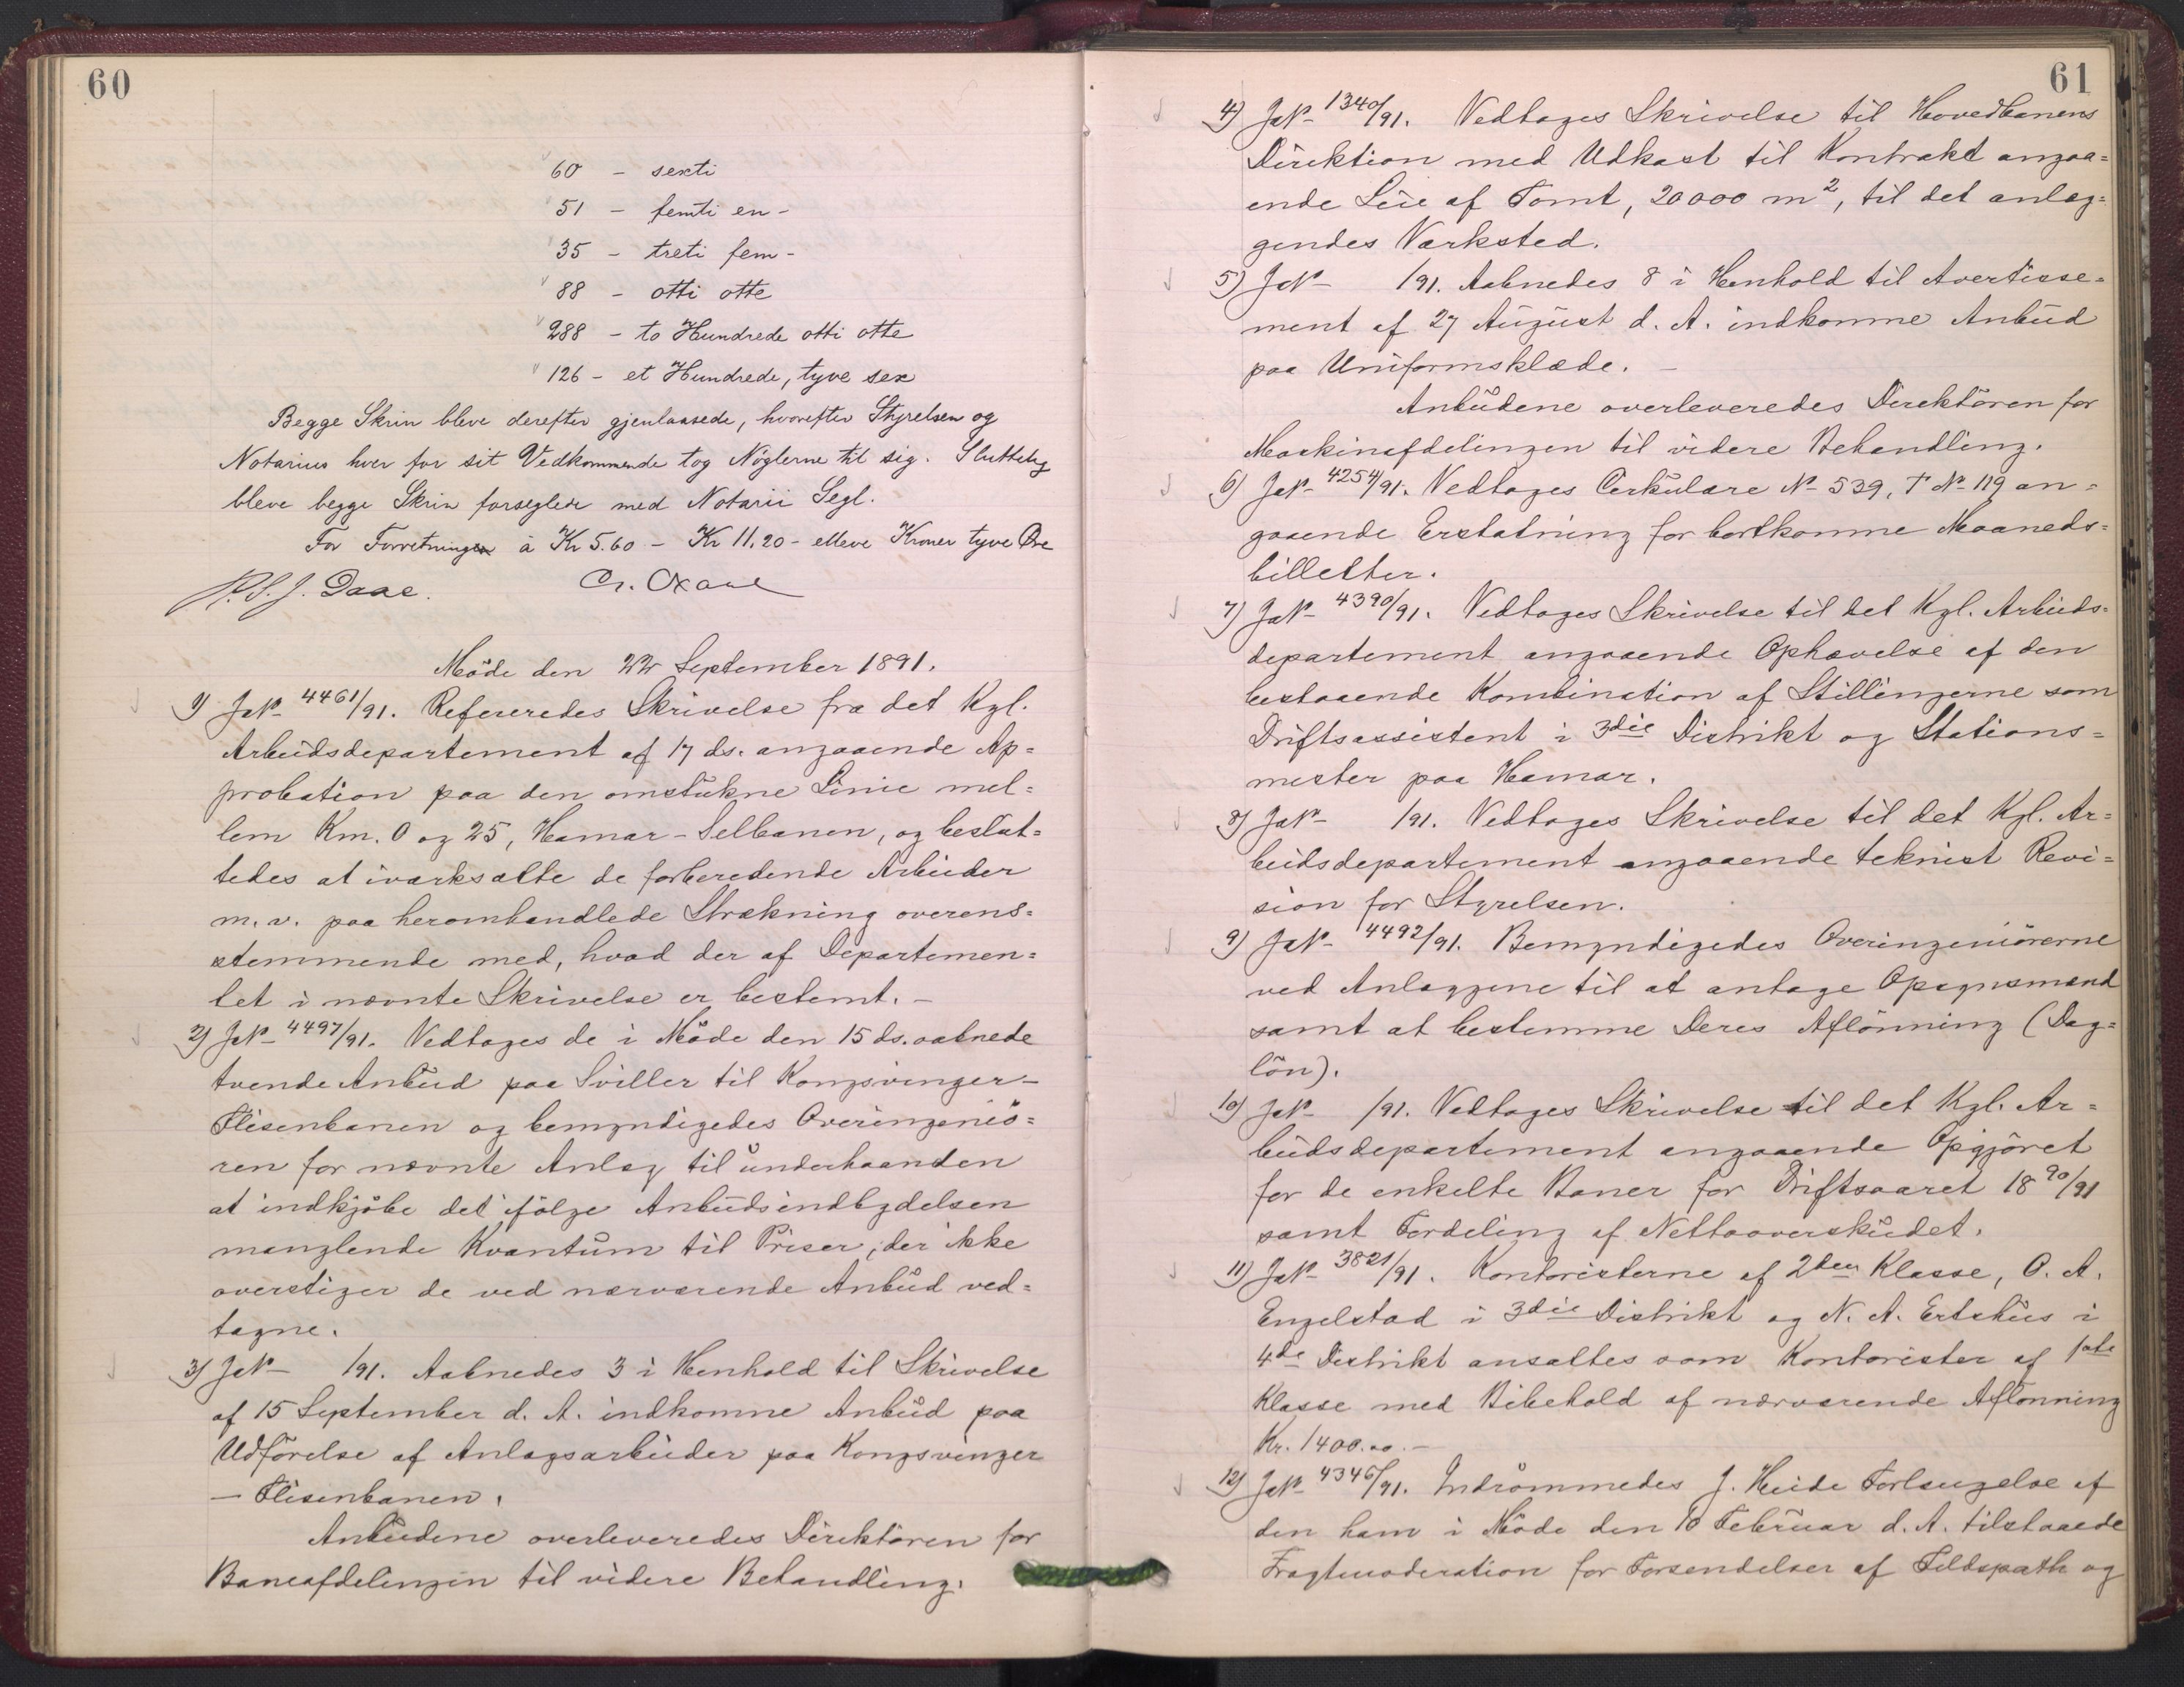 60
60 - sexti
51 - femti en -
35 - treti fem -
88 - otti otte
288 - to Hundrede otti otte
126 - et Hundrede, tyve sex
Begge Skrin bleve derefter gjenlaasede, hvorefter Styrelsen og
Notarius hver for sit Vedkommende tog Nöglerne til sig. Sluttelig
bleve begge Skrin forseglede med Notarii Segl.
For Forretningen à Kr 5.60 - Kr 11.20 - elleve Kroner tyve Øre
Daae.
Möde den 22 September 1891.
1) JNo 4461/91. Refereredes Skrivelse fra det Kgl.
Arbeidsdepartement af 17 ds. angaaende Ap=
probation paa den omstukne Linie mel=
lem Km. 0 og 25, Hamar-Selbanen, og beslut=
tedes at iværksætte de forberedende Arbeider
m. v. paa heromhandlede Strækning overens=
stemmende med, hvad der af Departemen=
tet i nævnte Skrivelse er bestemt. -
2) JNo 4497/91. Vedtoges de i Möde den 15 ds. aabnede
tvende Anbud paa Sviller til Kongsvinger-
Flisenbanen og bemyndigedes Overingeniö=
ren for nævnte Anlæg til underhaanden
at indkjöbe det ifölge Anbudsindbydelsen
manglende Kvantum til Priser, der ikke
overstiger de ved nærværende Anbud ved=
tagne.
3) JNo /91. Aabnedes 3 i Henhold til Skrivelse
af 15 September d. A. indkomne Anbud paa
Udförelse af Anlægsarbeider paa Kongsvinger
- Flisenbanen.
Anbudene overleveredes Direktören for
Baneafdelingen til videre Behandling.
61
4) JNo 1340/91. Vedtoges Skrivelse til Hovedbanens
Direktion med Udkast til Kontrakt angaa=
ende Leie af Tomt, 20000 m2, til det anlæg=
gendes Værksted.
5) JNo /91. Aabnedes 8 i Henhold til Avertisse=
ment af 27 August d. A. indkomne Anbud
paa Uniformsklæde. -
Anbudene overleveredes Direktören for
Maskinafdelingen til videre Behandling.
6) JNo 4254/91. Vedtoges Cirkulære No 539, T No 119 an=
gaaende Erstatning for bortkomne Maaneds=
billetter.
7) JNo 4390/91. Vedtoges Skrivelse til det Kgl. Arbeids=
departement angaaende Ophævelse af den
bestaaende Kombination af Stillingerne som
Driftsassistent i 3die Distrikt og Stations=
mester paa Hamar.
8) JNo /91. Vedtoges Skrivelse til det Kgl. Ar=
beidsdepartement angaaende teknist Revi=
sion for Styrelsen.
9) JNo 4492/91. Bemyndigedes Overingeniörerne
ved Anlæggene til at antage Opsynsmænd
samt at bestemme Deres Aflönning (Dag=
lön).
10) JNo /91. Vedtoges Skrivelse til det Kgl. Ar=
beidsdepartement angaaende Opgjöret
for de enkelte Baner for Driftsaaret 1890/91
samt Fordeling af Nettooverskudet.
11) JNo 3821/91. Kontoristerne af 2den Klasse, O. A.
Engelstad i 3die Distrikt og N. A. Ertshus i
4de Distrikt ansættes som Kontorister af 1ste
Klasse med Bibehold af nærværende Aflönning
Kr. 1400.00. -
12) JNo 4346/91. Indrömmedes J. Heide Forlængelse af
den ham i Möde den 10 Februar d. A. tilstaaede
Fragtmoderation for Forsendelser af Feldspath og